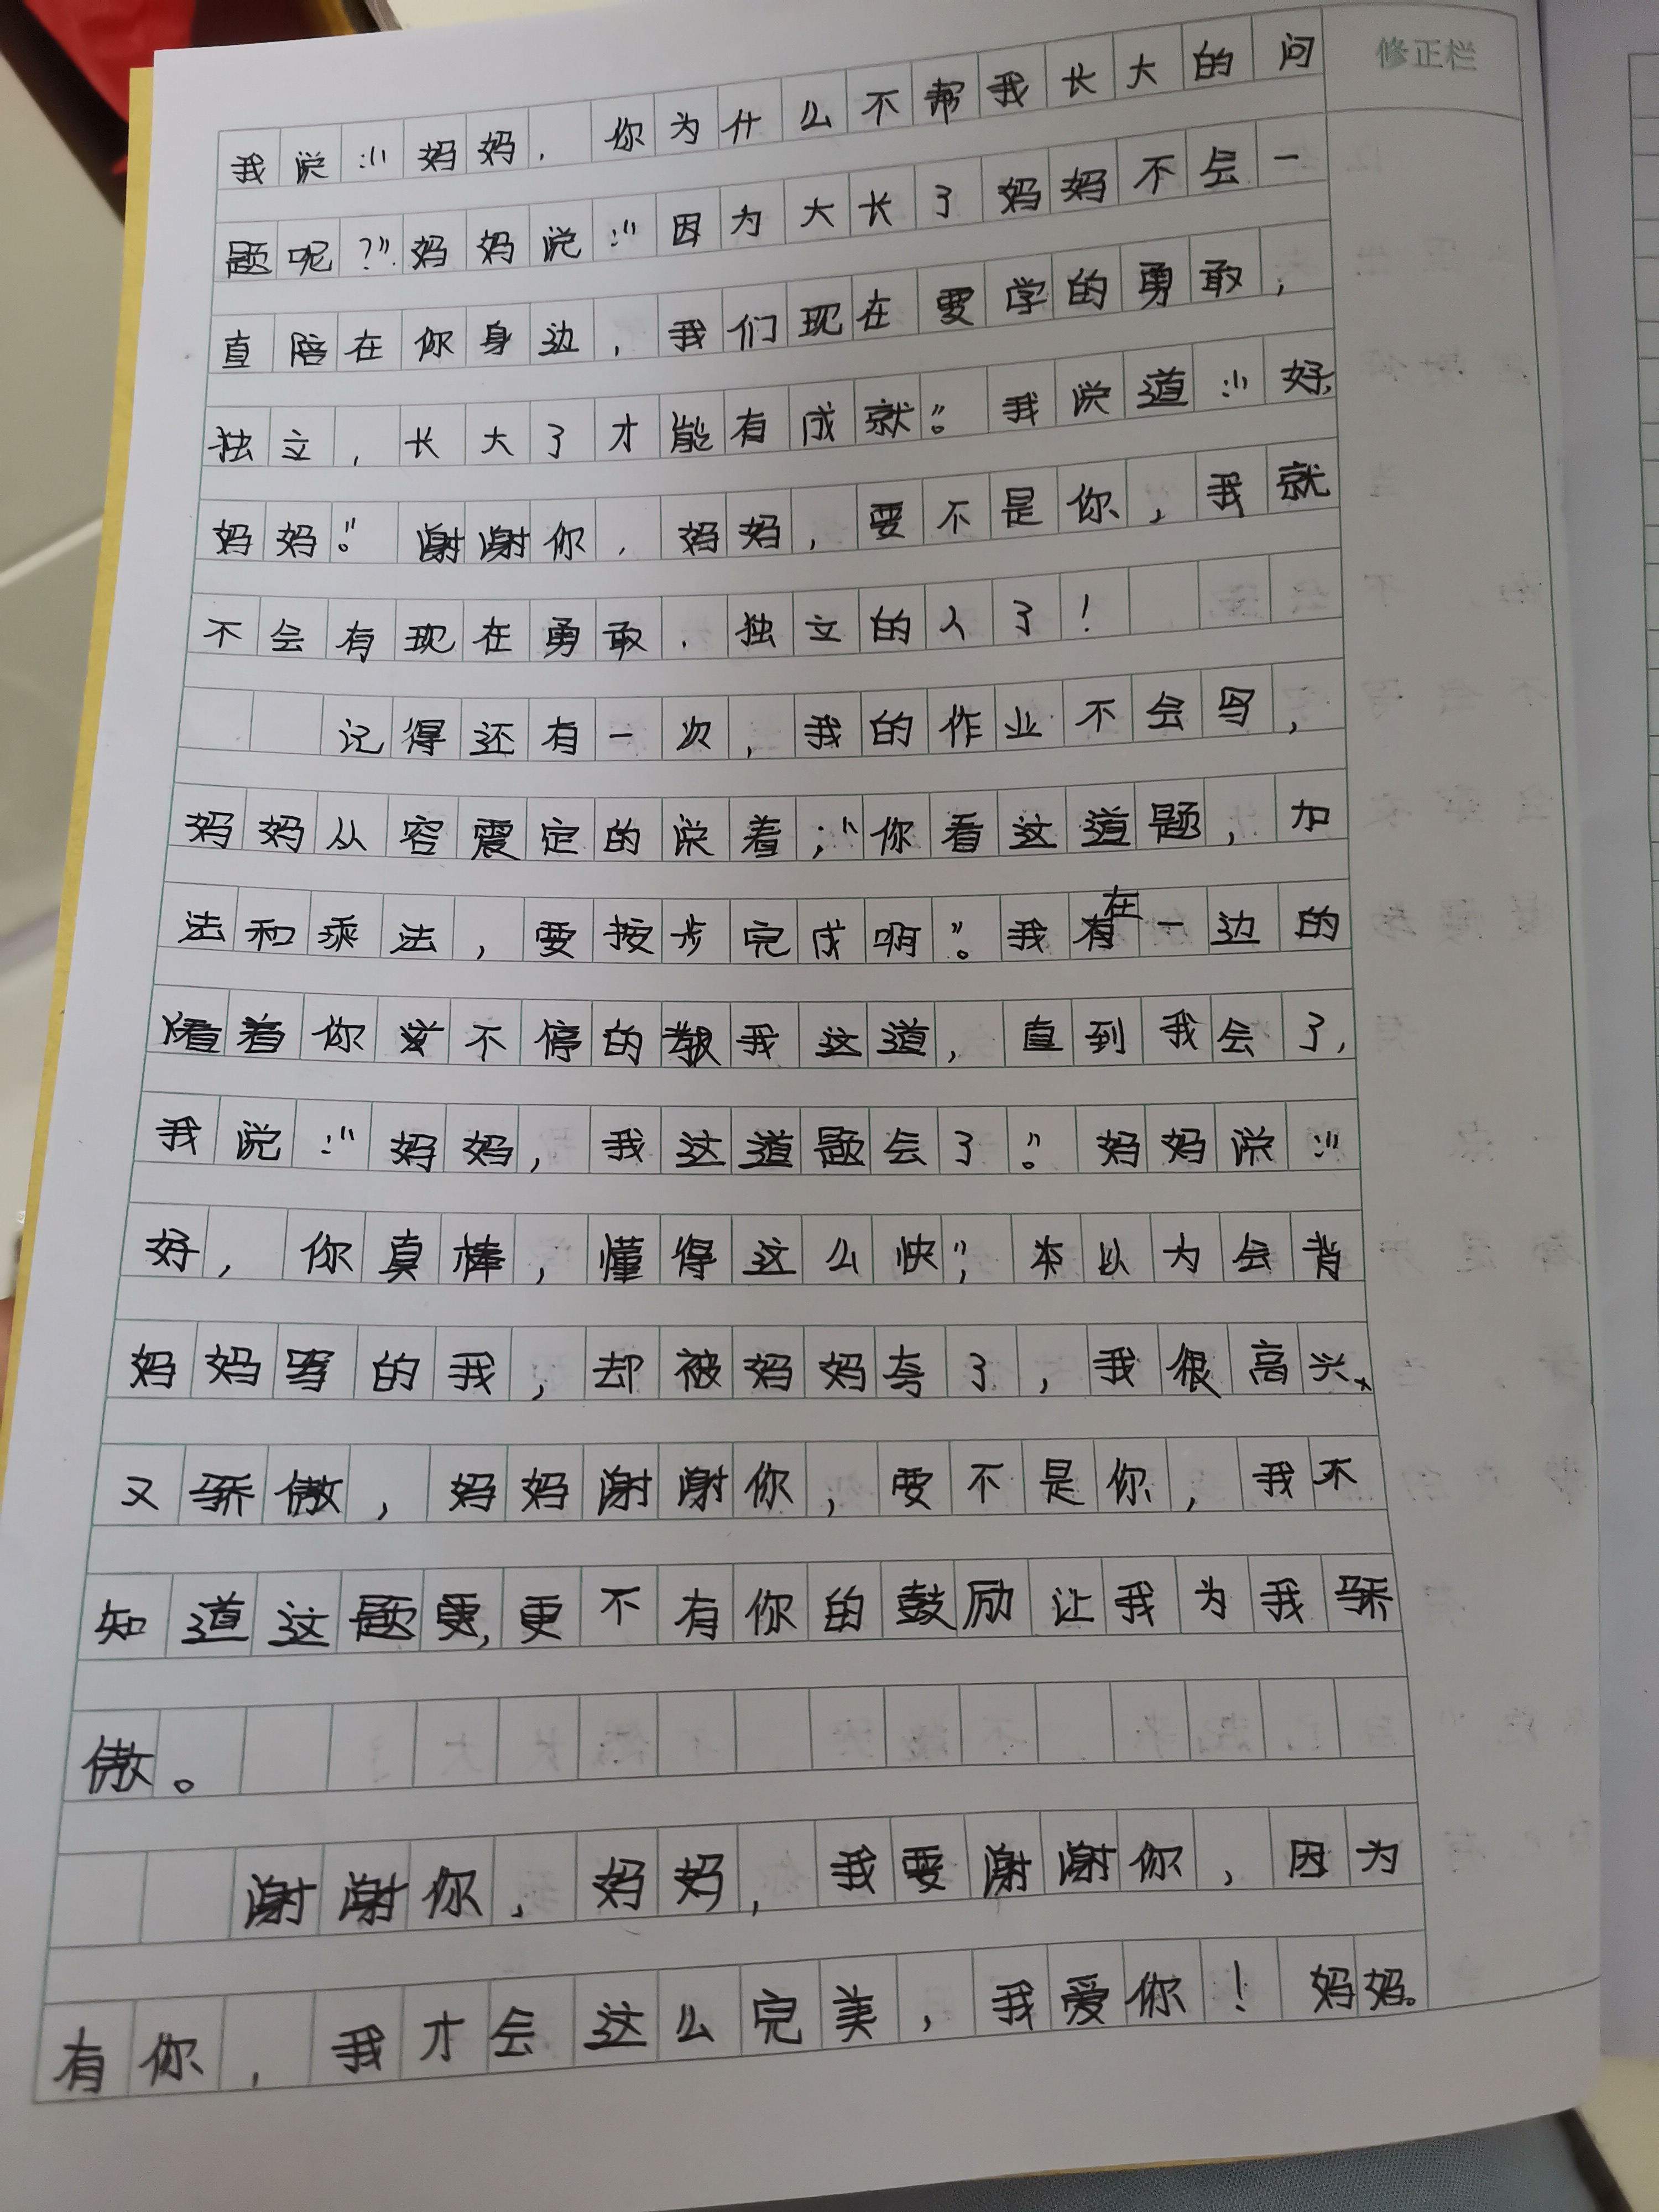 修正栏
我说:"妈妈,你为什么不帮我长大的问
题呢?"妈妈说:"因为大长了妈妈不会一
直陪在你身边,我们现在要学的勇敢,
独立,长大了才能有成就。"我说道:"好,
妈妈。"谢谢你,妈妈,要不是你,我就
不会有现在勇敢.独立的人了!
记得还有一次,我的作业不会写,
妈妈从容震定的说着;"你看这道题,加
法和乘法,要按步完成啊"。我在一边的
看着你不停的教我这道,直到我会了,
我说:"妈妈,我这道题会了。"妈妈说:"
好,你真棒,懂得这么快",本以为会背
妈妈骂的我,却被妈妈夸了,我很高兴、
又骄傲,妈妈谢谢你,要不是你,我不
知道这题,更不有你的鼓励让我为我骄
傲。
谢谢你,妈妈,我要谢谢你,因为
有你,我才会这么完美,我爱你!妈妈。